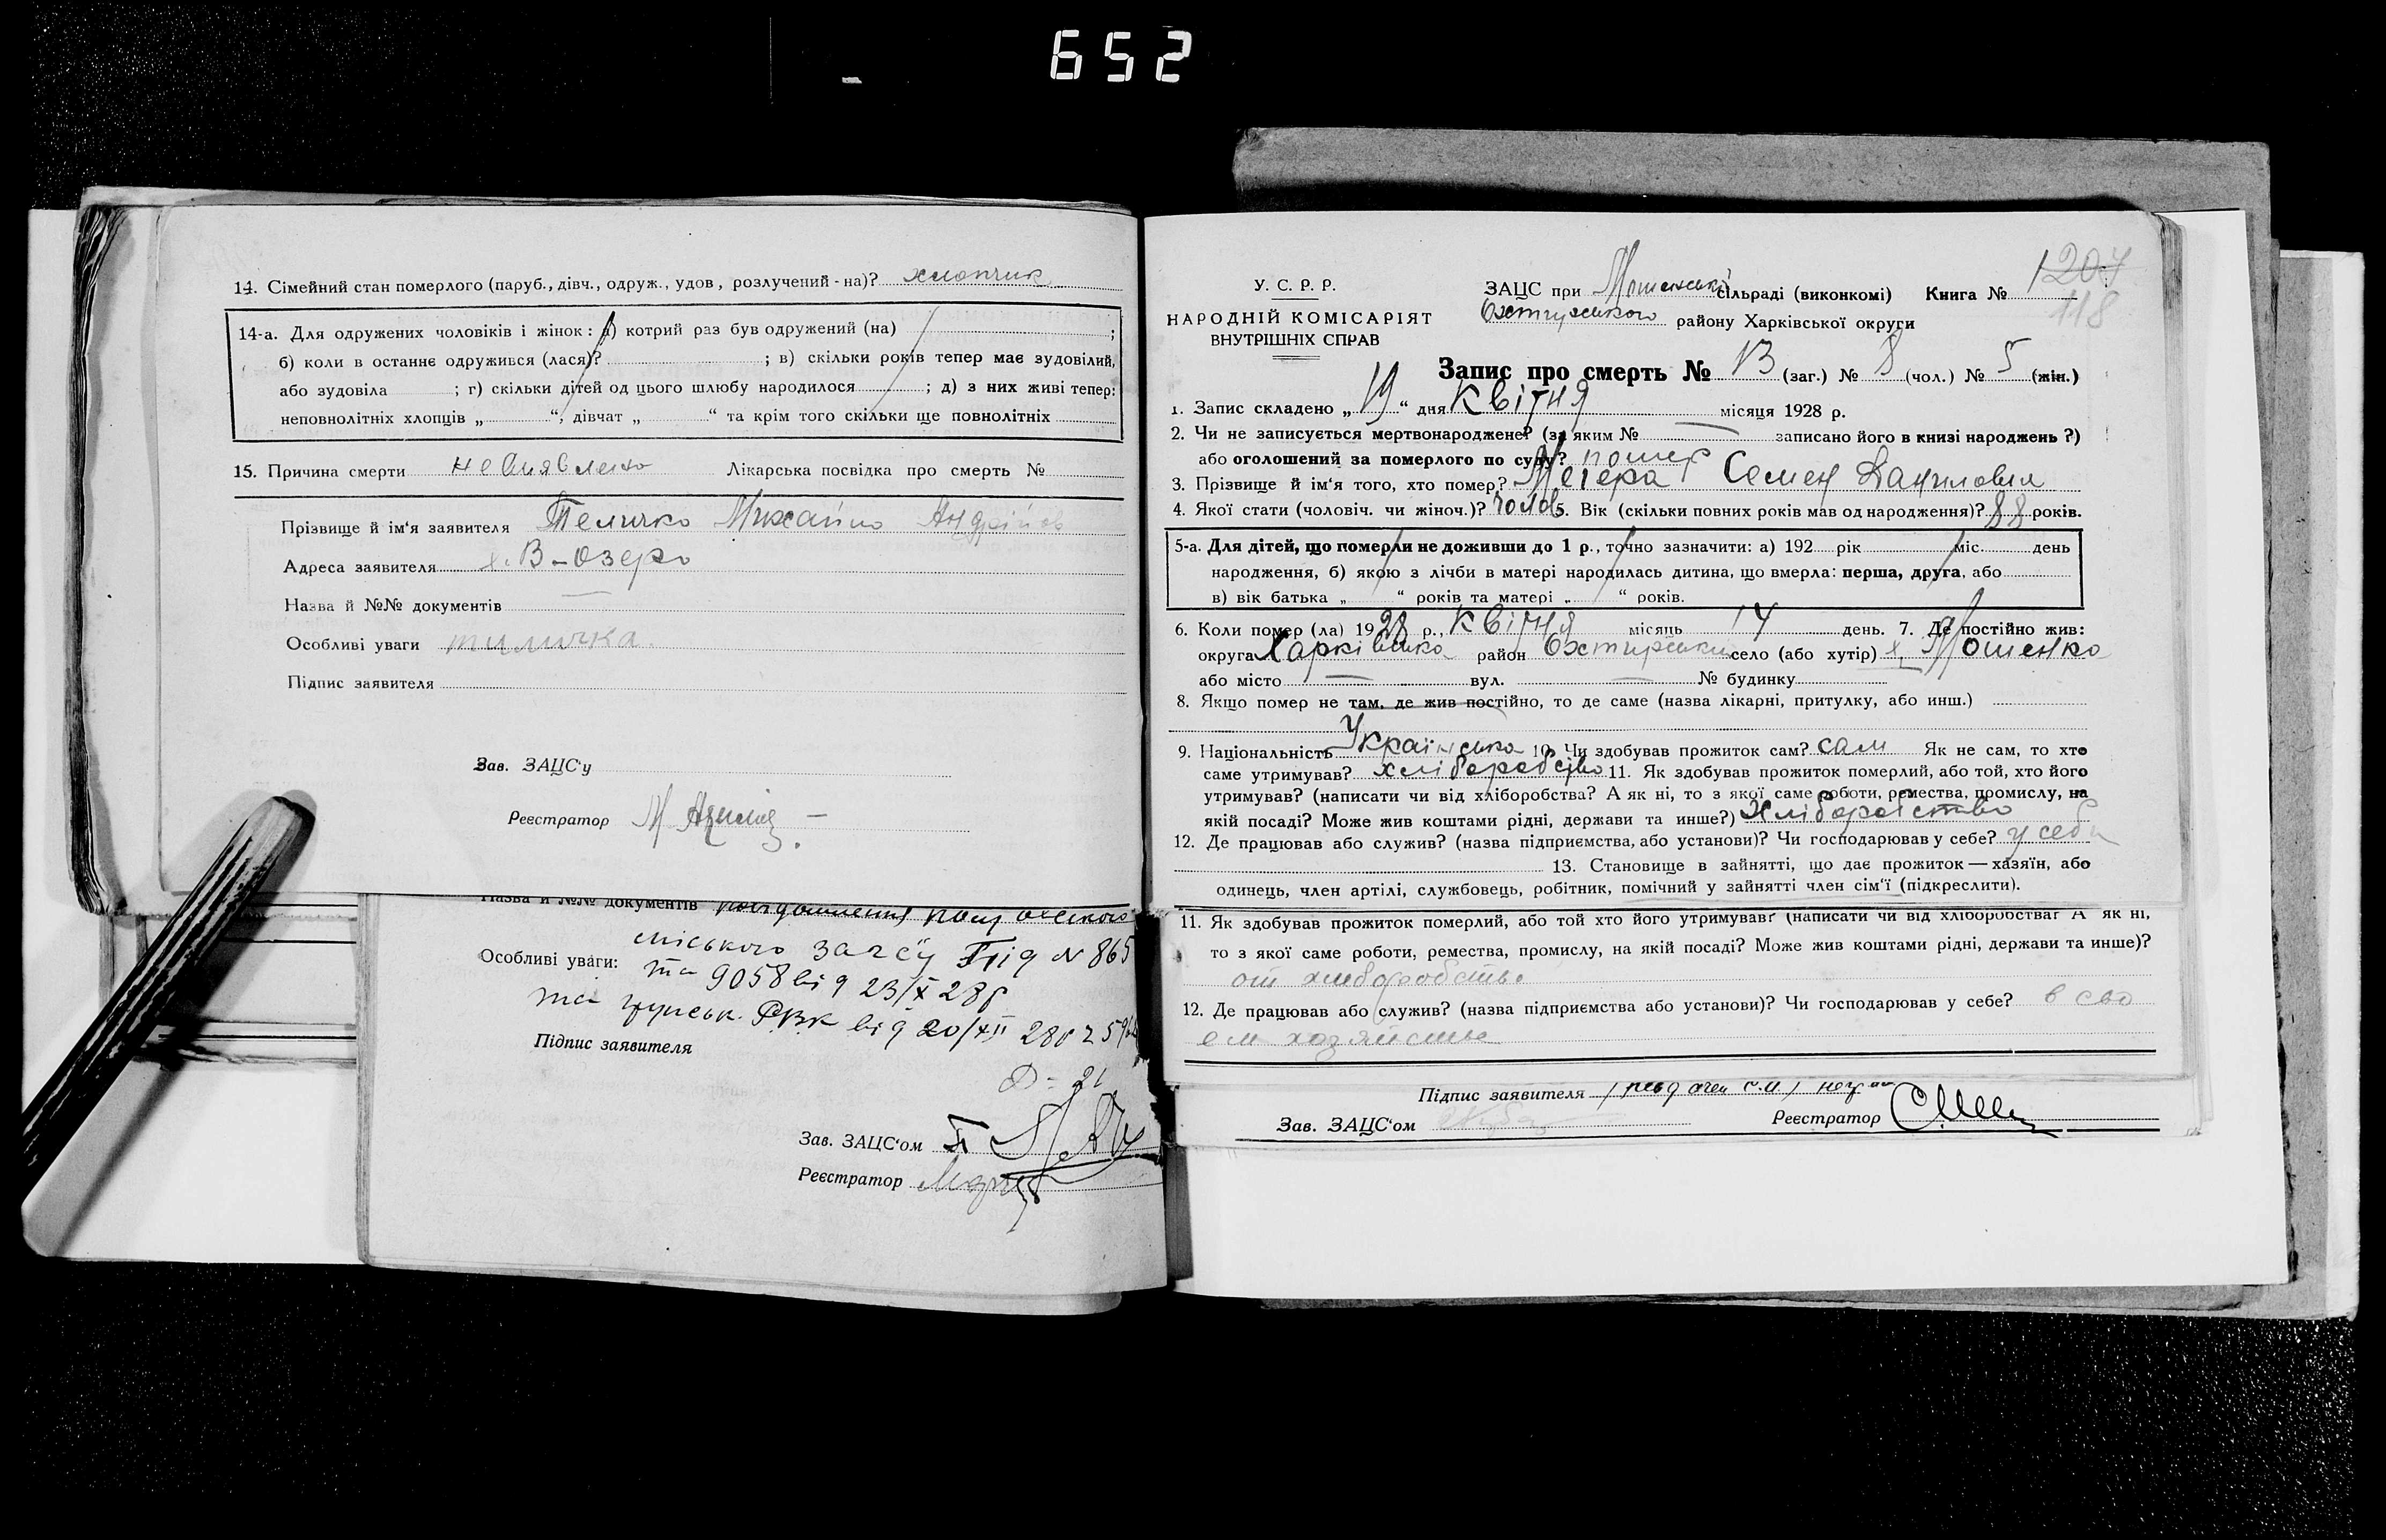 652
14. Сімейний стан померлого (паруб., дівч., одруж., удов., розлучений-на)? хлопчик
14-а. Для одружених чоловіків і жінок: а) котрий раз був одружений (на) ;
б) коли в останнє одружився (лася)? ; в) скільки років тепер має зудовілий,
або зудовіла ; г) скільки дітей од цього шлюбу народилося ; д) з них живі тепер:
неповнолітніх хлопців „ “, дівчат „ “ та крім того скільки ще повнолітніх
15. Причина смерти не виявлено Лікарська посвідка про смерть №
Прізвище й ім'я заявителя Теличко Михайло
Адреса заявителя х. В-Озеро
Назва й №№ документів
Особливі уваги
Підпис заявителя
Зав. ЗАЦС'у
Реєстратор М
Назва й №№ документів
міського
Особливі уваги: та 9058 від 23/X 28р
та РВК від 20/XII 28р
Підпис заявителя
Зав. ЗАЦС'ом
Реєстратор
У. С. Р. Р.
НАРОДНІЙ КОМІСАРІЯТ
ВНУТРІШНІХ СПРАВ
ЗАЦС при Мошенській сільраді (виконкомі) Книга № 1207
118
Охтирського району Харківської округи
Запис про смерть № 13 (заг.) № 8 (чол.) № 5 (жін.)
1. Запис складено „ 19 “ дня Квітня місяця 1928 р.
2. Чи не записується мертвонароджене? (за яким № записано його в книзі народжень?)
або оголошений за померлого по суду? помер
3. Прізвище й ім'я того, хто помер? Мегера Семен Данилович
4. Якої стати (чоловіч. чи жіноч.)? Чолов 5. Вік (скільки повних років мав од народження)? 88 років.
5-а. Для дітей, що померли не доживши до 1 р., точно зазначити: а) 192 рік міс. день
народження, б) якою з лічби в матері народилась дитина, що вмерла: перша, друга, або
в) вік батька „ “ років та матері „ “ років.
6. Коли помер (ла) 1928 р., Квітня місяць 14 день. 7. Де постійно жив:
округа Харківська район Охтирський село (або хутір) х. Мошенка
або місто — вул. — № будинку
8. Якщо помер не там, де жив постійно, то де саме (назва лікарні, притулку, або инш.)
9. Національність Українська 10. Чи здобував прожиток сам? сам Як не сам, то хто
саме утримував? хліборобство 11. Як здобував прожиток померлий, або той, хто його
утримував? (написати чи від хліборобства? А як ні, то з якої саме роботи, ремества, промислу, на
якій посаді? Може жив коштами рідні, держави та инше?) Хліборобство
12. Де працював або служив? (назва підприємства, або установи)? Чи господарював у себе? у себе
13. Становище в зайнятті, що дає прожиток — хазяїн, або
одинець, член артілі, службовець, робітник, помічний у зайнятті член сім'ї (підкреслити).
11. Як здобував прожиток померлий, або той хто його утримував? (написати чи від хліборобства? А як ні,
то з якої саме роботи, ремества, промислу, на якій посаді? Може жив коштами рідні, держави та инше)?
от хлеборобства
12. Де працював або служив? (назва підприємства або установи)? Чи господарював у себе? в сво
ем хазяйстве
Підпис заявителя
Зав. ЗАЦС'ом Реєстратор